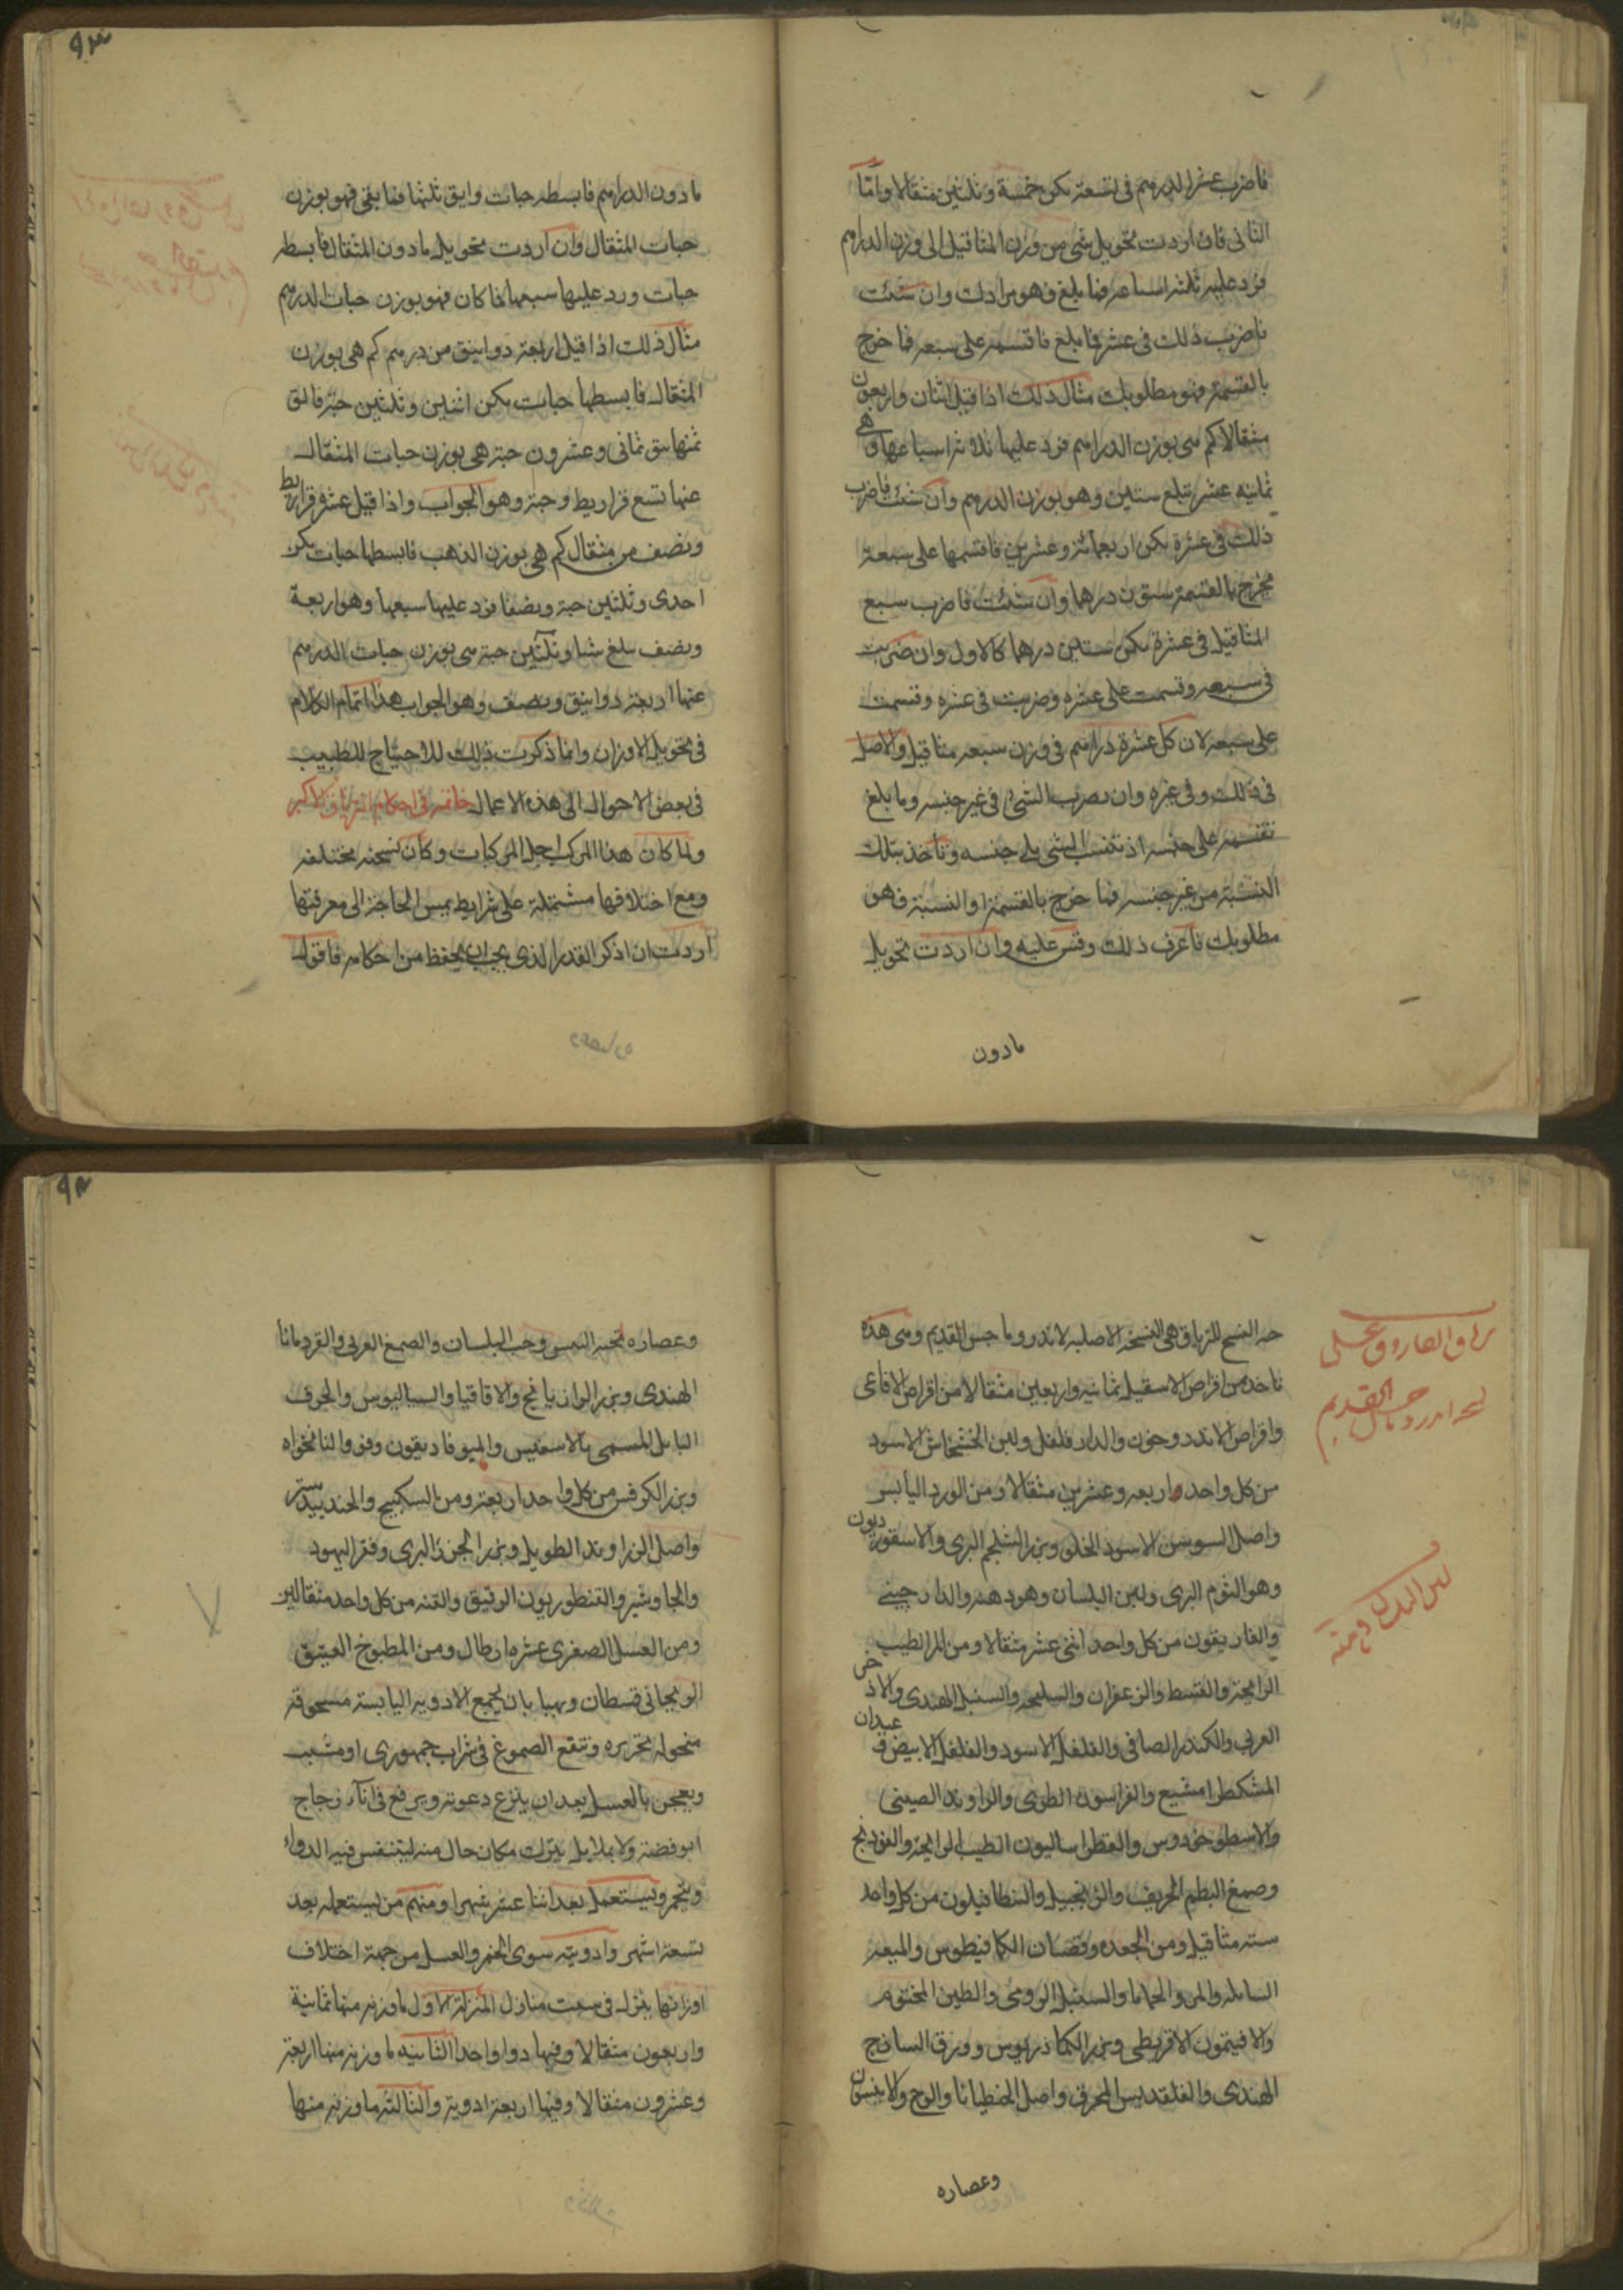 فاضرب عشر الدرهم في تسعة يكن خمسة وثلثين مثقالا واما
الثاني فان اردت تحويل شي من وزن المثاقيل الى وزن الدراهم
فزد عليه ثلثة اسباعه فما بلغ فهو مرادك وان شئت
فاضرب ذلك في عشر فما بلغ فاقسمه على سبعه فما خرج
بالقسمة فهو مطلوبك مثال ذلك اذا قيل اثنان واربعون
مثقالا كم هي بوزن الدراهم فزد عليها ثلاثة اسباعها وهي
ثمانيه عشر تبلغ ستين وهو بوزن الدرهم وان شئت فاضرب
ذلك في عشرة يكن اربعمائة وعشرين فاقسمها على سبعة
يخرج بالقسمة ستون درهما وان شئت فاضرب سبع
المثاقيل في عشرة يكن ستين درهما كالاول وان ضربت
في سبعه وقسمت على عشره وضربت في عشره وقسمت
على سبعه لان كل عشرة دراهم في وزن سبعه مثاقيل والاصل
في ذلك وفي غيره وان يضرب الشئ في غير جنسه وما بلغ
تقسمه على جنسه اذ تنسب الشي الى جنسه وتاخذ بتلك
النسبة من غير جنسه فما خرج بالقسمة او النسبة فهو
مطلوبك فاعرف ذلك وقس عليه وان اردت تحويل
مادون
٩٣
مادون الدراهم فابسطه حبات وابق ثلثها فما بقي فهو بوزن
حبات المثقال وان اردت تحويل مادون المثقال فابسطه
حبات وزد عليها سبعها فما كان فهو بوزن حبات الدرهم
مثال ذلك اذا قيل اربعة دوانيق من درهم كم هي بوزن
المثقال فابسطها حبات يكن اثنين وثلثين حبة فالق
ثمنها يبق ثماني وعشرون حبة هي بوزن حبات المثقال
عنها تسع قراريط وحبة وهو الجواب واذا قيل عشر قراريط
ونصف من مثقال كم هي بوزن الذهب فابسطها حبات يكن
احدى وثلثين حبة ونصفا فزد عليها سبعها وهو اربعة
ونصف يبلغ ستا وثلثين حبة هي بوزن حبات الدرهم
عنها اربعة دوانيق ونصف وهو الجواب هذا تمام الكلام
في تحويل الاوزان وانما ذكرت ذلك للاحتياج للطبيب
في بعض الاحوال الى هذه الاعمال خاتمه في احكام الترياق الاكبر
ولما كان هذا المركب اجل المركبات وكان نسخه مختلفه
ومع اختلافها مشتملة على شرايط يمس الحاجة الى معرفتها
اردت ان اذكر القدر الذي يجب ان يحفظ من احكامه فاقول
ترياق الفاروق على
القديم
النسخ للترياق هي النسخه الاصليه لاندروماخس القديم وهي هذه
تاخذ من اقراص الاسقيل ثمانيه واربعين مثقالا من اقراص الافاعي
واقراص الاندروخون والدار فلفل ولبن الخشخاش الاسود
من كل واحد اربعه وعشرين مثقالا ومن الورد اليابس
واصل السوسن الاسود الخلو وبزر الشلجم البري والاسقورديون
وهو الثوم البري ولبن البلسان وهو دهنه والدارچيني
والغاريقون من كل واحد اثني عشر مثقالا ومن المر الطيب
الرايحة والقسط والزعفران والسليخه والسنبل الهندي والاذخر
العربي والكندر الصافي والفلفل الاسود والفلفل الابيض وعيدان
المشكطرامشيع والفراسون الطري والراوند الصيني
والاسطوخودوس والفطراساليون الطيب الرايحة والفودنج
وصمغ البطم الحريف والزنجبيل والنطافيلون من كل واحد
سته مثاقيل ومن الجعده وقضبان الكمافيطوس والميعه
السايله والمر والحماما والسنبل الرومي والطين المختوم
والافيتمون الاقريطي وبزر الكماذريوس وورق الساذج
الهندي والقلقديس المحرق واصل الجنطيانا والوج والانيسون
وعصاره
٩٤
وعصاره لحية التيس وحب البلسان والصمغ العربي والقردمانا
الهندي وبزر الرازيانج والاقاقيا والسساليوس والحرف
البابلي المسمى بالاسفنيس والهيوفاريقون وفو والنانخواه
وبزر الكرفس من كل واحد اربعة ومن السكبينج والجندبيدستر
واصل الزراوند الطويل وبزر الجزر البري وقفر اليهود
والجاوشير والقنطوريون الدقيق والقنه من كل واحد مثقالين
ومن العسل الصعتري عشره ارطال ومن المطبوخ العتيق
الريحاني قسطان ويهيا بان يجمع الادويه اليابسة مسحوقه
منخوله بحريره وتنقع الصموغ في شراب جمهوري او مشمس
ويعجن بالعسل بعد ان ينزع رغوته ويرفع في اناء زجاج
او فضة ولا يملا بل يترك مكان خال منه ليتنفس فيه الدواء
ويخمر ويستعمل بعد اثنا عشر شهرا ومنهم من يستعمله بعد
تسعة اشهر وادويته سوى الخمر والعسل من جهة اختلاف
اوزانها ينزل في ست منازل المنزلة الاولى ما وزنه منها ثمانية
واربعون مثقالا وفيها دوا واحد الثانيه ما وزنه منها اربعة
وعشرون مثقالا وفيها اربعة ادوية والثالثه ما وزنه منها